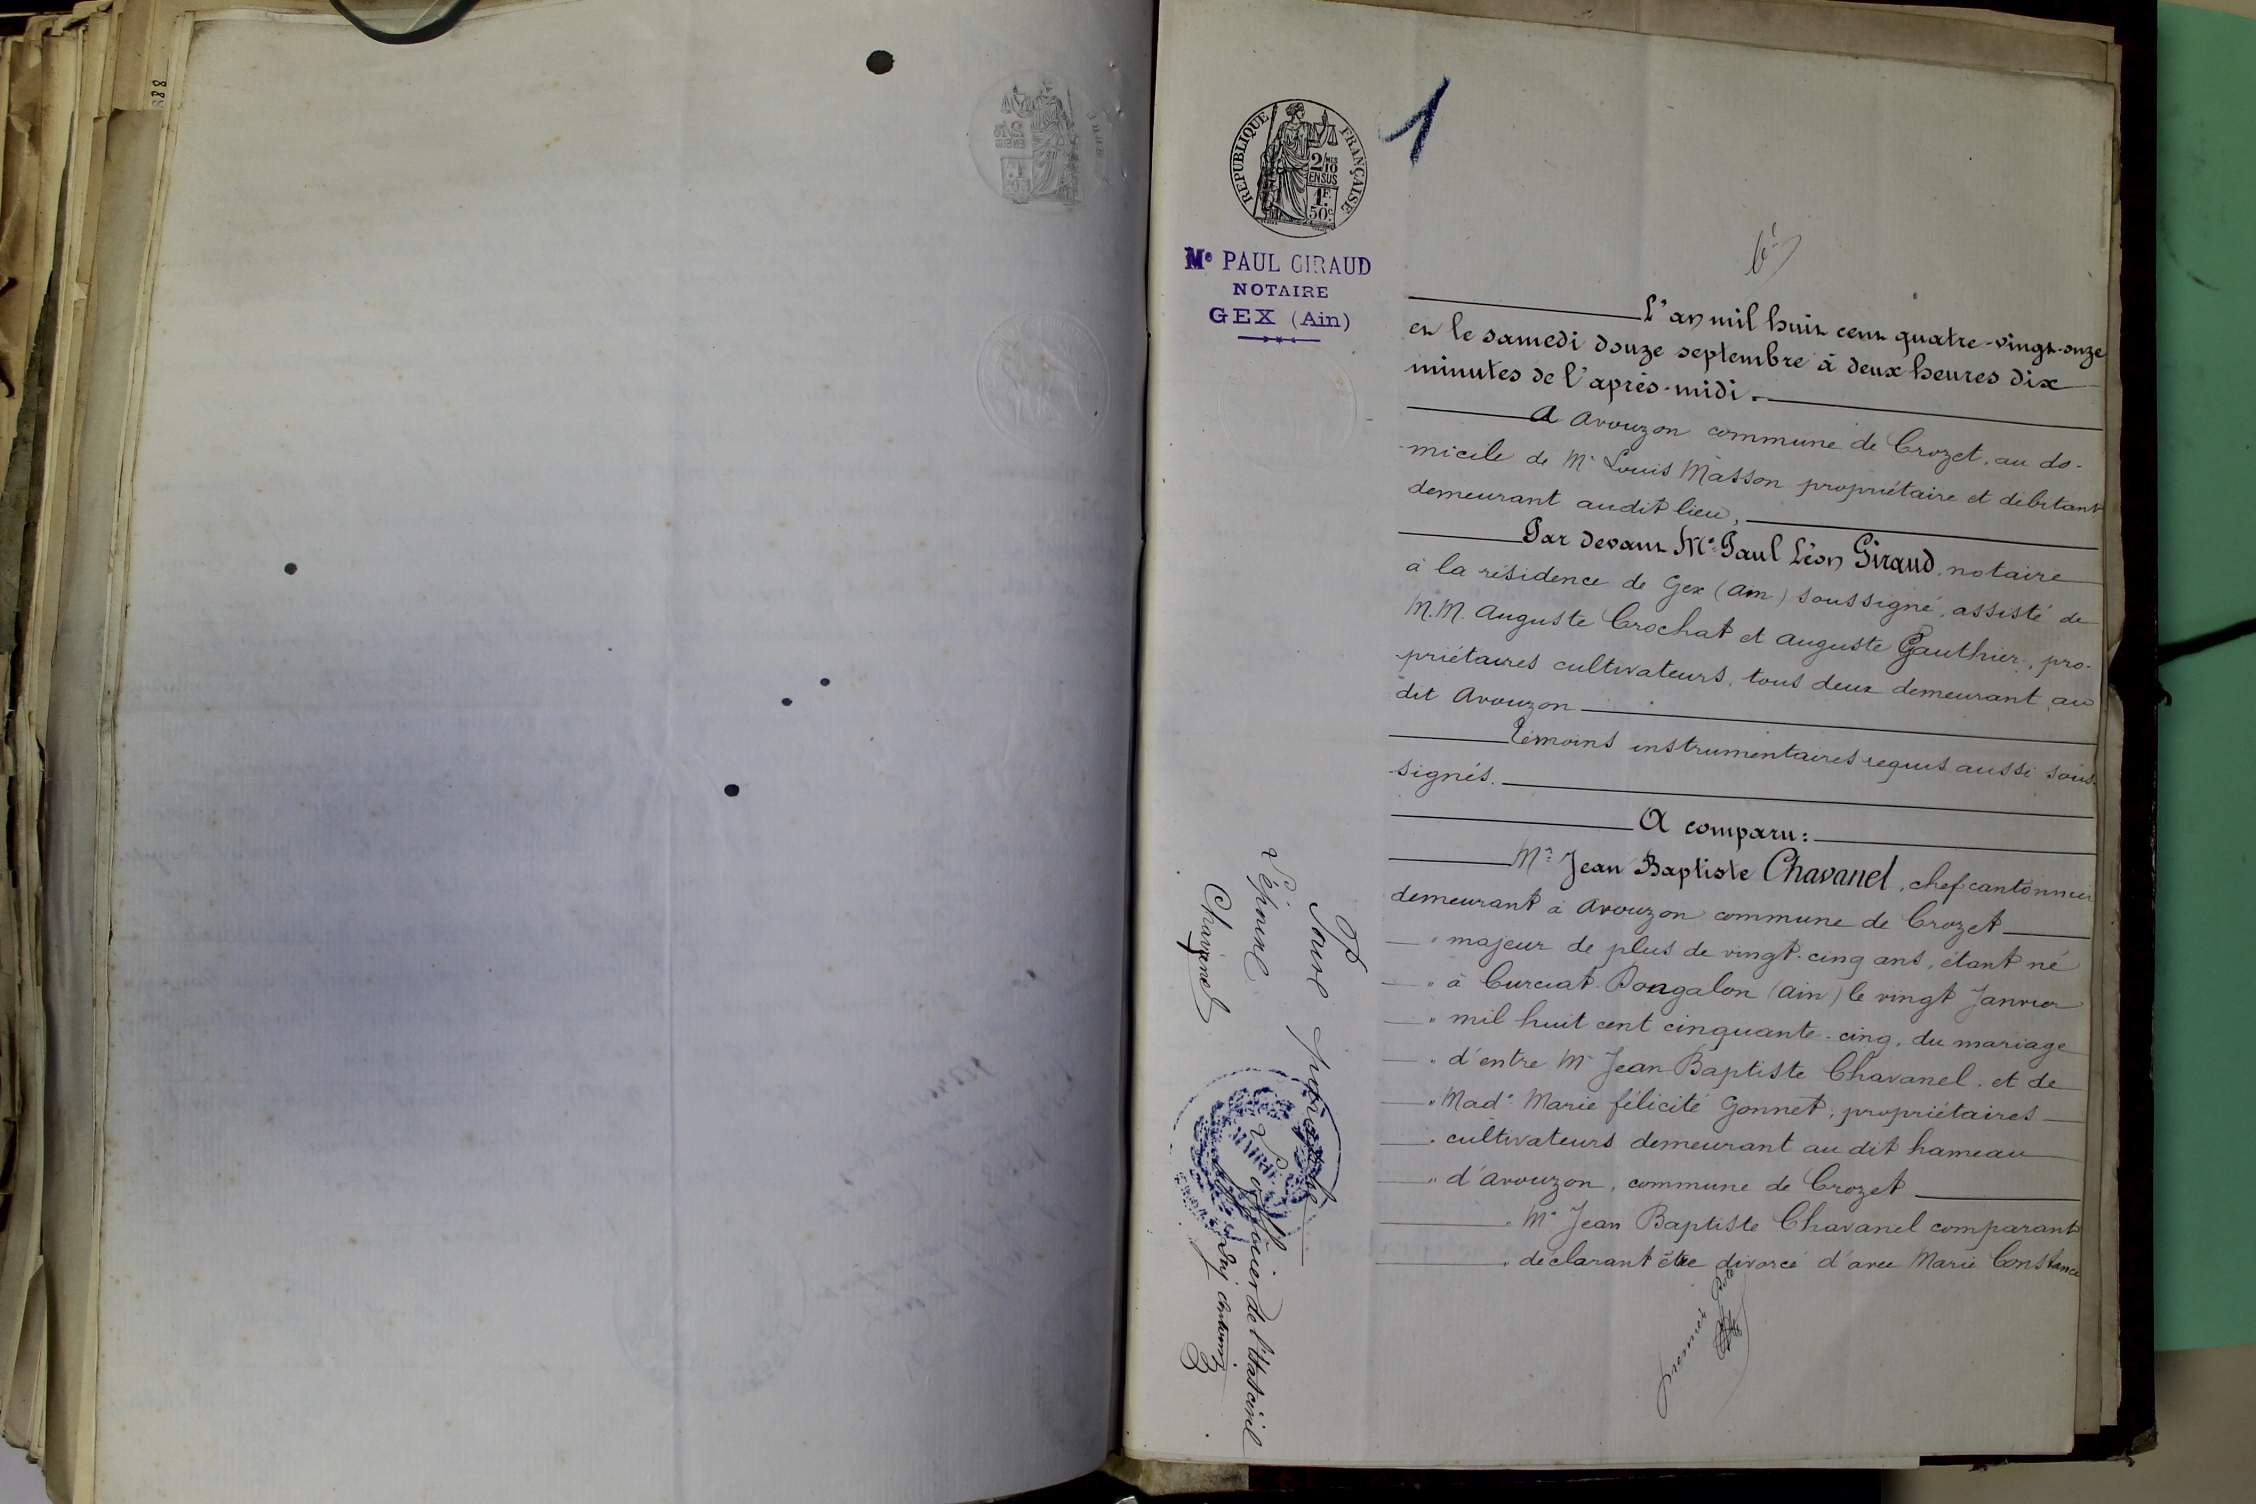 888
RÉPUBLIQUE FRANÇAISE
2/10 MES
EN SUS
1F.
50c.
1
Me PAUL GIRAUD
NOTAIRE
GEX (Ain)
L'an mil huit cent quatre-vingt-onze
et le samedi douze septembre à deux heures dix
minutes de l'après-midi.
A Avouzon commune de Crozet, au do-
micile de Mr Louis Masson propriétaire et débitant
demeurant audit lieu,
Par devant Me Paul Léon Giraud, notaire
à la résidence de Gex (Ain) soussigné, assisté de
M.M. Auguste Crochat et Auguste Gauthier, pro-
priétaires cultivateurs, tous deux demeurant au
dit Avouzon
Témoins instrumentaires requis aussi sous-
signés.
A comparu:
Mr Jean Baptiste Chavanel, chef cantonnier
demeurant à Avouzon commune de Crozet
" majeur de plus de vingt-cinq ans, étant né
" à Curciat-Dongalon (Ain) le vingt Janvier
" mil huit cent cinquante-cinq, du mariage
" d'entre Mr Jean Baptiste Chavanel, et de
" Made Marie félicité Gonnet, propriétaires
" cultivateurs demeurant au dit hameau
" d'Avouzon, commune de Crozet
" Mr Jean Baptiste Chavanel comparant
" déclarant être divorcé d'avec Marie Constance
L'épouse
Chavanel
L'officier de l'Etat civil
MAIRIE
premier